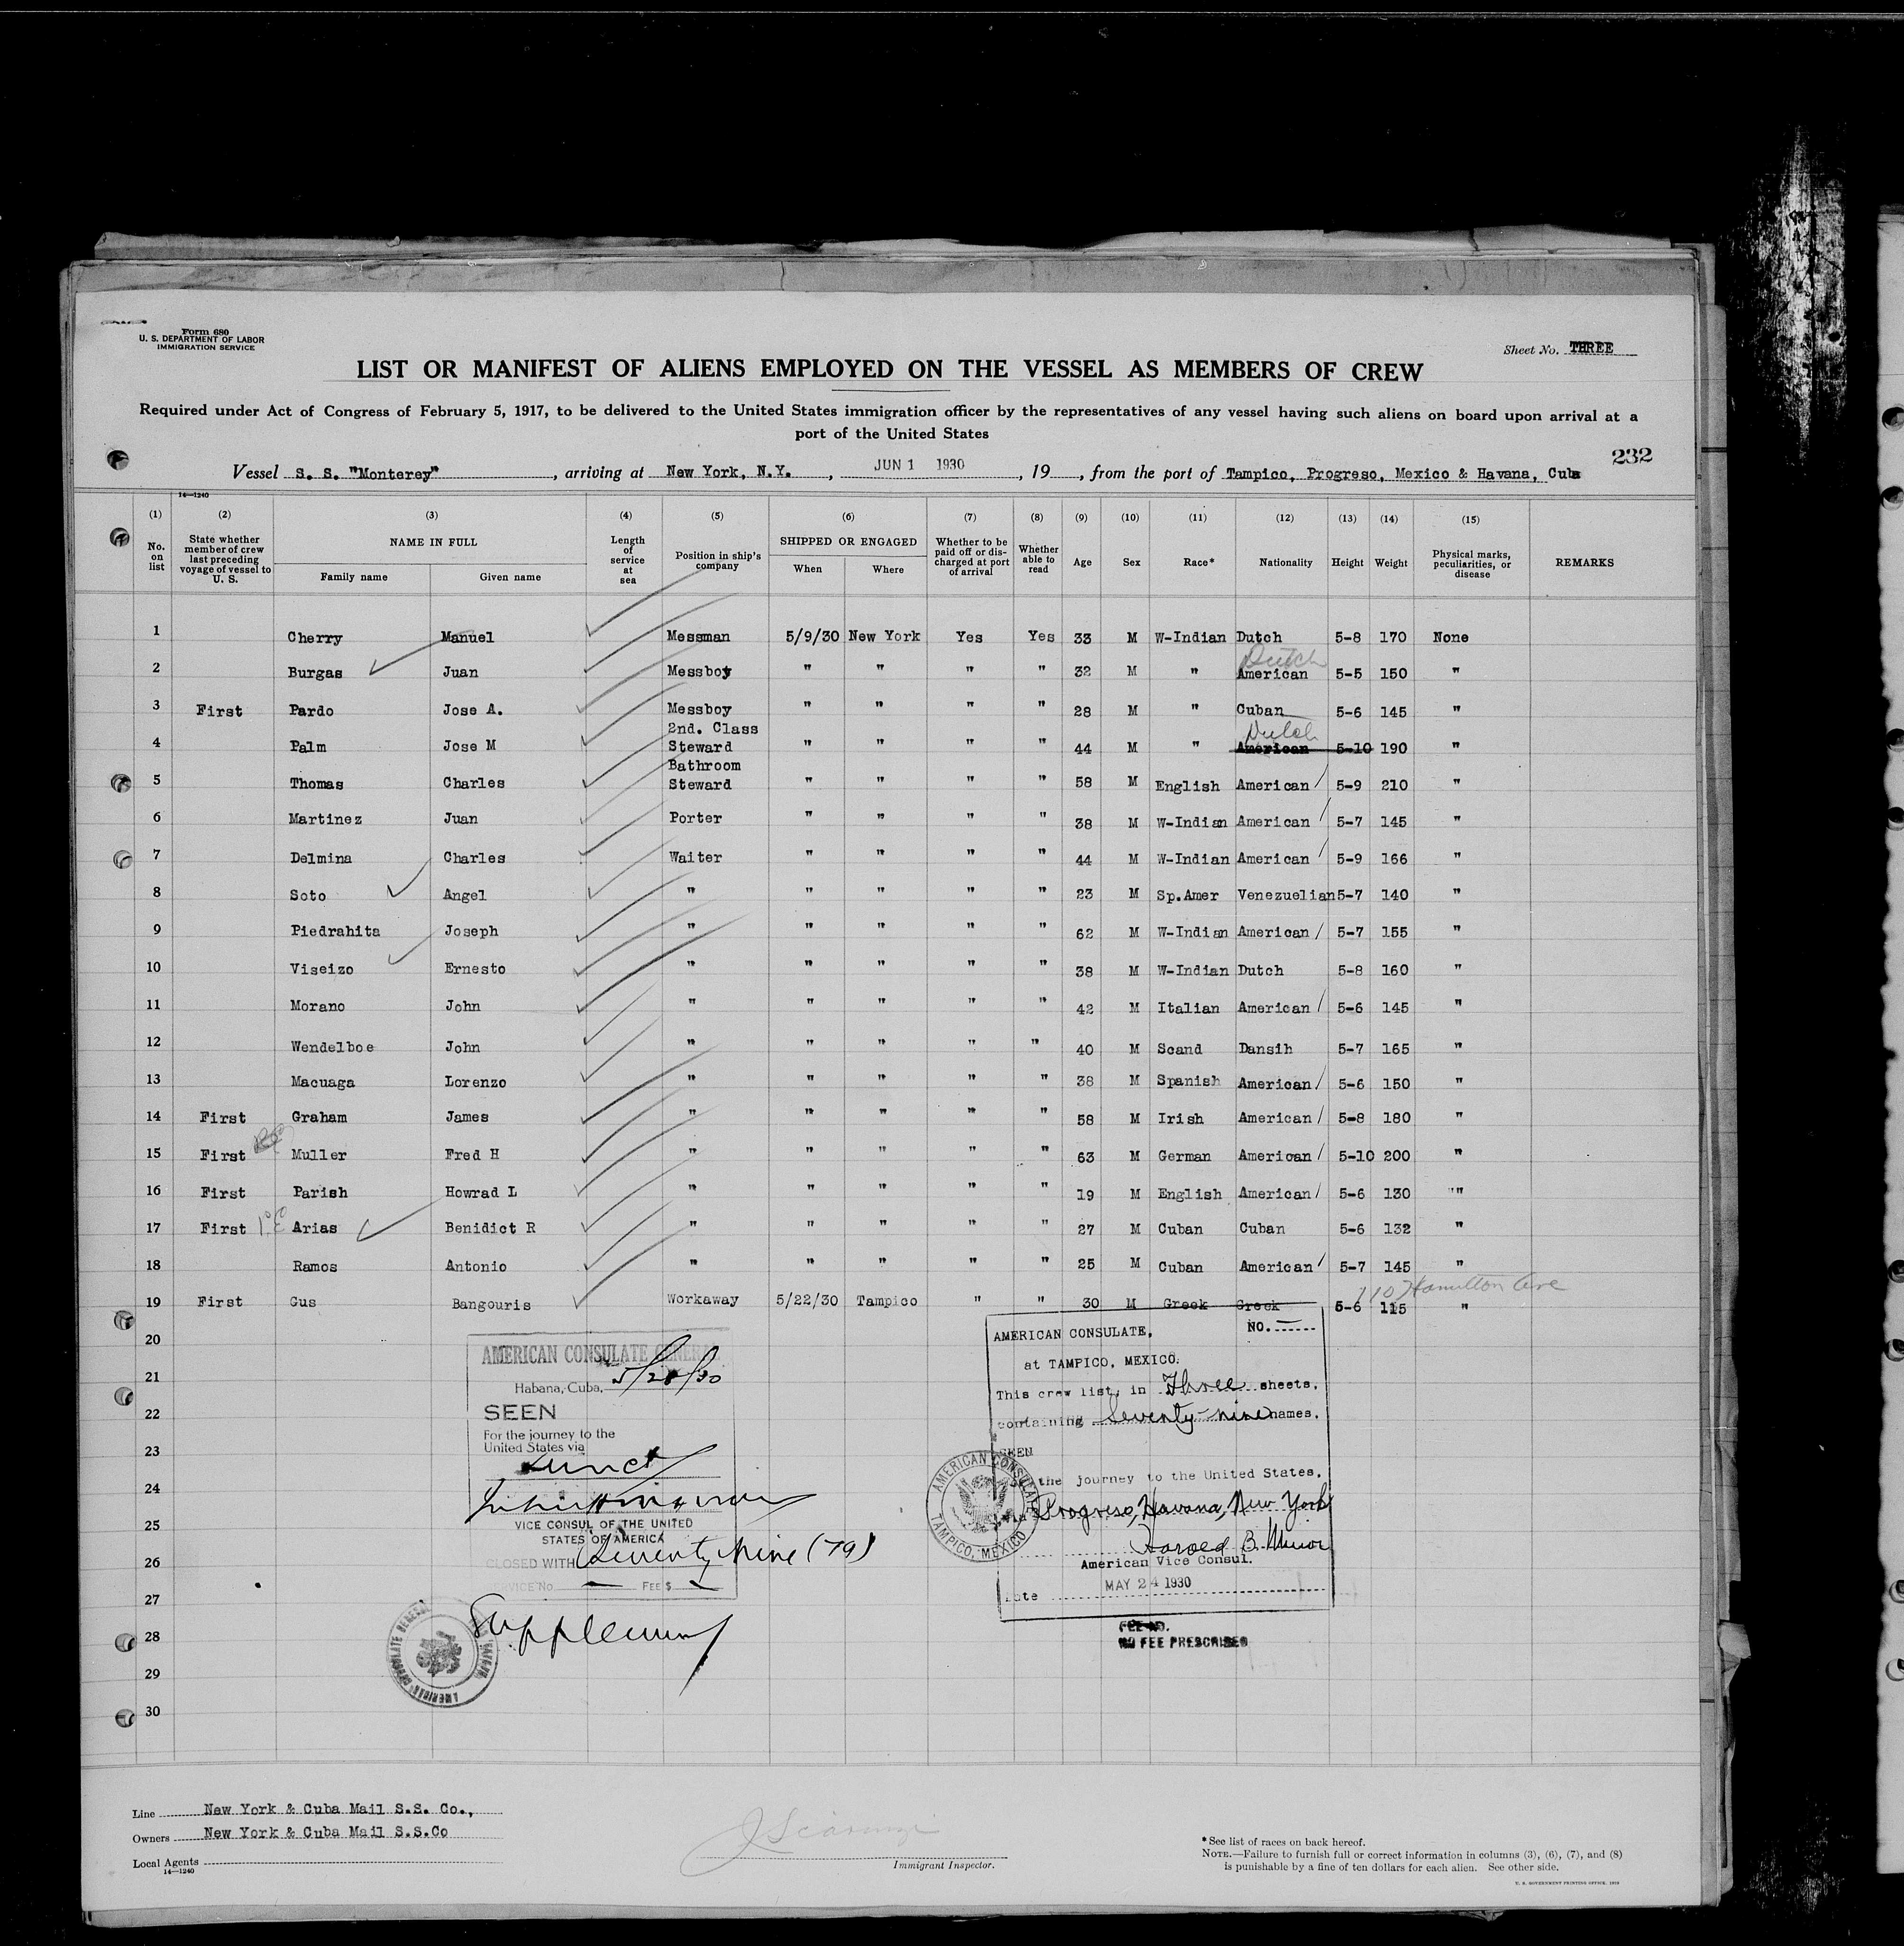 Form 680
U. S. DEPARTMENT OF LABOR
IMMIGRATION SERVICE
Sheet No. THREE
LIST OR MANIFEST OF ALIENS EMPLOYED ON THE VESSEL AS MEMBERS OF CREW
Required under Act of Congress of February 5, 1917, to be delivered to the United States immigration officer by the representatives of any vessel having such aliens on board upon arrival at a
port of the United States
232
Vessel S. S. "Monterey", arriving at New York, N.Y., JUN 1 1930, 19, from the port of Tampico, Progreso, Mexico & Havana, Cuba
14—1240
(1) (2) (3) (4) (5) (6) (7) (8) (9) (10) (11) (12) (13) (14) (15)
No. on list
State whether member of crew last preceding voyage of vessel to U. S.
NAME IN FULL
Family name Given name
Length of service at sea
Position in ship's company
SHIPPED OR ENGAGED
When Where
Whether to be paid off or discharged at port of arrival
Whether able to read
Age Sex Race* Nationality Height Weight
Physical marks, peculiarities, or disease
REMARKS
1 Cherry Manuel Messman 5/9/30 New York Yes Yes 33 M W-Indian Dutch 5-8 170 None
Dutch
2 Burgas Juan Messboy " " " " 32 M " American 5-5 150 "
3 First Pardo Jose A. Messboy " " " " 28 M " Cuban 5-6 145 "
2nd. Class Dutch
4 Palm Jose M Steward " " " " 44 M " American 5-10 190 "
Bathroom
5 Thomas Charles Steward " " " " 58 M English American 5-9 210 "
6 Martinez Juan Porter " " " " 38 M W-Indian American 5-7 145 "
7 Delmina Charles Waiter " " " " 44 M W-Indian American 5-9 166 "
8 Soto Angel " " " " " 23 M Sp.Amer Venezuelian 5-7 140 "
9 Piedrahita Joseph " " " " " 62 M W-Indian American 5-7 155 "
10 Viseizo Ernesto " " " " " 38 M W-Indian Dutch 5-8 160 "
11 Morano John " " " " " 42 M Italian American 5-6 145 "
12 Wendelboe John " " " " " 40 M Scand Dansih 5-7 165 "
13 Macuaga Lorenzo " " " " " 38 M Spanish American 5-6 150 "
14 First Graham James " " " " " 58 M Irish American 5-8 180 "
15 First Muller Fred H " " " " " 63 M German American 5-10 200 "
16 First Parish Howrad L " " " " " 19 M English American 5-6 130 ""
17 First Arias Benidict R " " " " " 27 M Cuban Cuban 5-6 132 "
18 Ramos Antonio " " " " " 25 M Cuban American 5-7 145 "
110 Hamilton Ave
19 First Gus Bangouris Workaway 5/22/30 Tampico " " 30 M Greek Greek 5-6 115 "
20
21
22
23
24
25
26
27
28
29
30
AMERICAN CONSULATE GENERAL
Habana, Cuba, 5/28/30
SEEN
For the journey to the
United States via
VICE CONSUL OF THE UNITED
STATES OF AMERICA
CLOSED WITH Seventy Nine (79)
SERVICE No. — FEE $ —
AMERICAN CONSULATE GENERAL
AMERICAN CONSULATE, NO. —
at TAMPICO, MEXICO.
This crew list, in Three sheets,
containing Seventy-nine names.
SEEN
the journey to the United States,
via Progreso, Havana, New York
Harold B. Minor
American Vice Consul.
Date MAY 24 1930
AMERICAN CONSULATE TAMPICO, MEXICO
FEE NO.
NO FEE PRESCRIBED
Line New York & Cuba Mail S.S. Co.,
Owners New York & Cuba Mail S.S.Co
Local Agents
14—1240
Immigrant Inspector.
* See list of races on back hereof.
NOTE.—Failure to furnish full or correct information in columns (3), (6), (7), and (8)
is punishable by a fine of ten dollars for each alien. See other side.